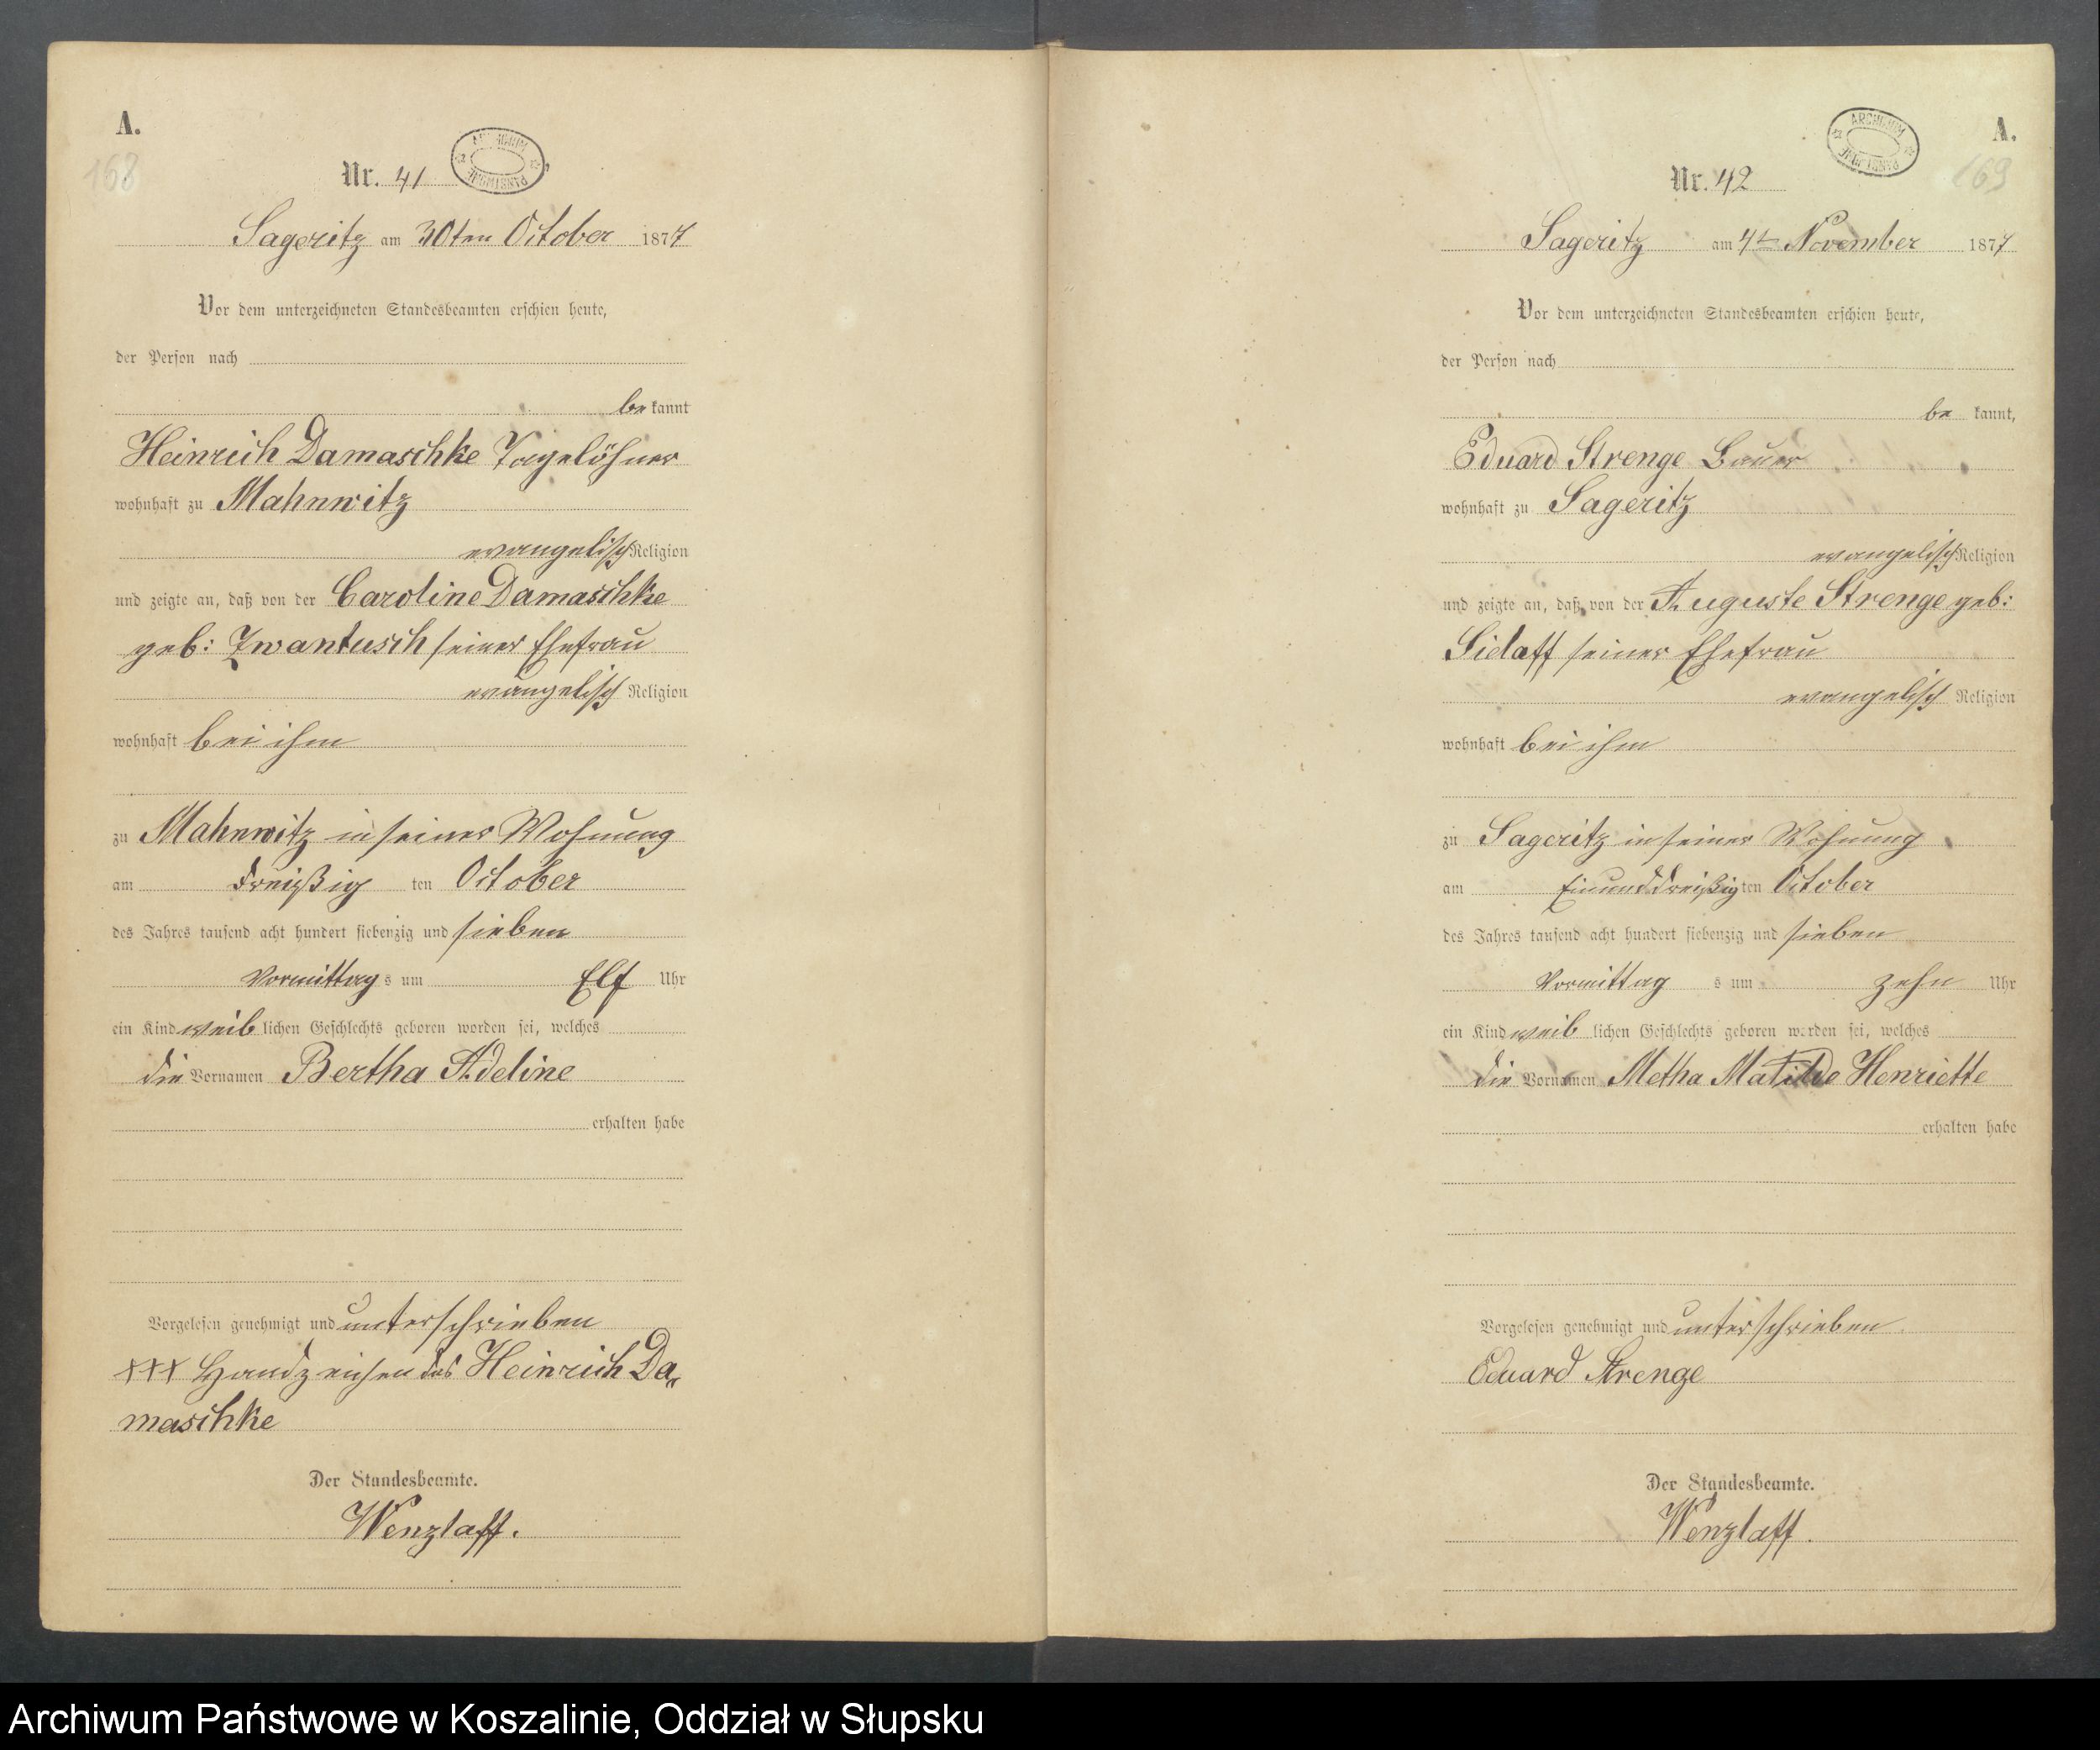 A.
168
Nr. 41
ARCHIWUM PAŃSTWOWE
Sageritz am 30ten October 1877
Vor dem unterzeichneten Standesbeamten erschien heute,
der Person nach
be kannt
Heinrich Damaschke Tagelöhner
wohnhaft zu Mahnwitz
evangelisch Religion
und zeigte an, daß von der Caroline Damaschke
geb: Zwantusch seiner Ehefrau
evangelisch Religion
wohnhaft bei ihm
zu Mahnwitz in seiner Wohnung
am dreißig ten October
des Jahres tausend acht hundert siebenzig und sieben
Vormittag s um Elf Uhr
ein Kind weib lichen Geschlechts geboren worden sei, welches
die Vornamen Bertha Adeline
erhalten habe
Vorgelesen genehmigt und unterschrieben
+++ Handzeichen des Heinrich Da„
maschke
Der Standesbeamte.
Wenzlaff.
A.
169
Nr. 42
ARCHIWUM PAŃSTWOWE
Sageritz am 4t November 1877
Vor dem unterzeichneten Standesbeamten erschien heute,
der Person nach
be kannt,
Eduard Strenge Bauer
wohnhaft zu Sageritz
evangelisch Religion
und zeigte an, daß von der Auguste Strenge geb:
Sielaff seiner Ehefrau
evangelisch Religion
wohnhaft bei ihm
zu Sageritz in seiner Wohnung
am Einunddreißig ten October
des Jahres tausend acht hundert siebenzig und sieben
Vormittag s um zehn Uhr
ein Kind weib lichen Geschlechts geboren worden sei, welches
die Vornamen Metha Matilde Henriette
erhalten habe
Vorgelesen genehmigt und unterschrieben
Eduard Strenge
Der Standesbeamte.
Wenzlaff.
Archiwum Państwowe w Koszalinie, Oddział w Słupsku